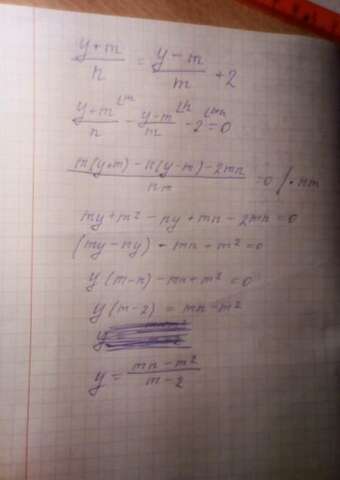 (y+m)/n = (y-m)/m + 2
(y+m)/n ^(Lm) - (y-m)/m ^(Ln) - 2 ^(Lmn) = 0
(m(y+m) - n(y-m) - 2mn)/nm = 0 / · nm
my + m² - ny + mn - 2mn = 0
(my - ny) - mn + m² = 0
y(m-n) - mn + m² = 0
y(m-2) = mn - m²
y = (mn - m²)/(m-2)